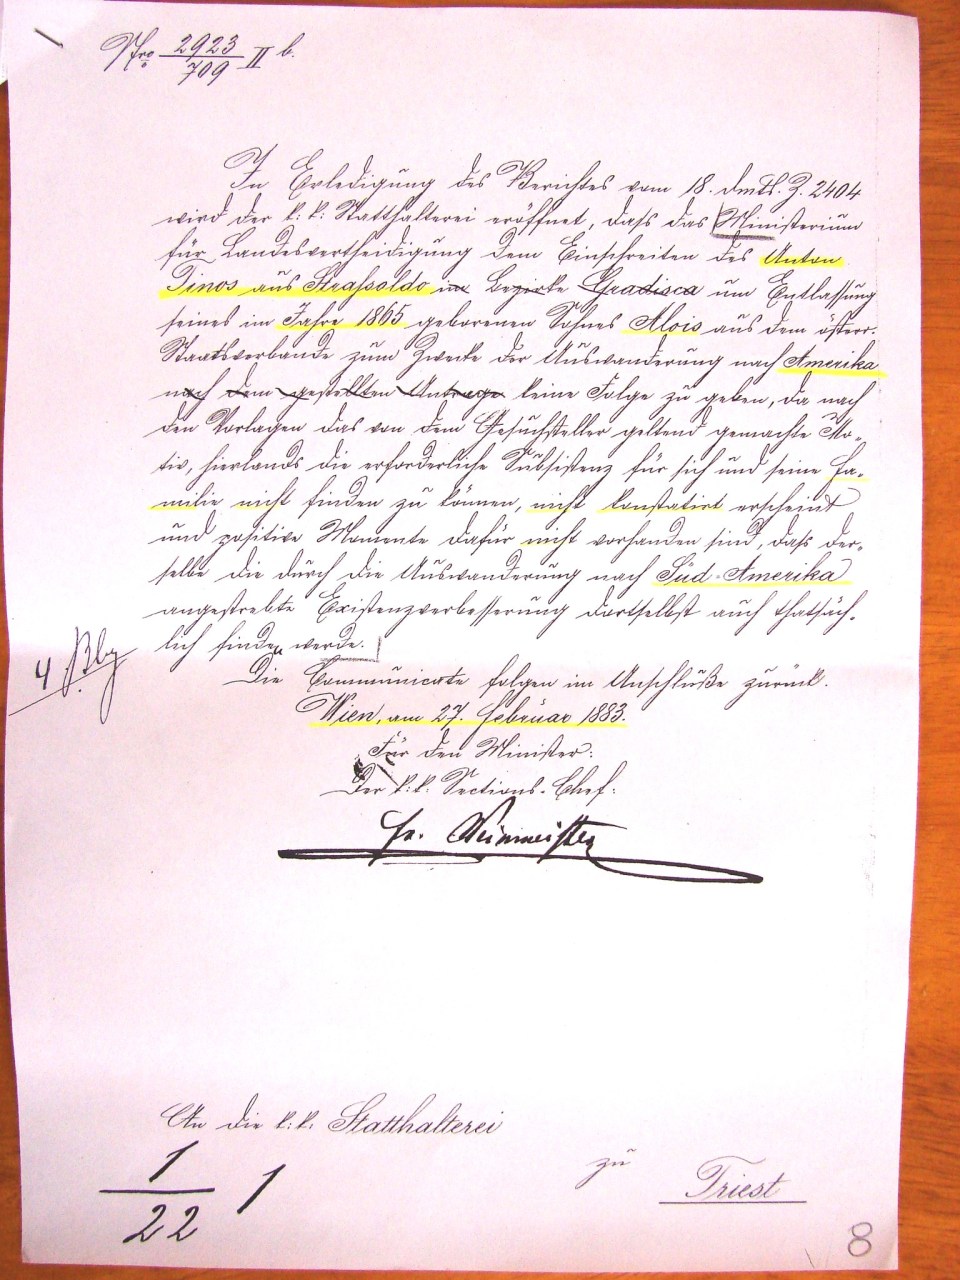 Nro 2923/709 II b.
In Erledigung des Berichtes vom 18. dmts. Z. 2404
wird der k: k: Statthalterei eröffnet, daß das Ministerium
für Landesvertheidigung dem Einschreiten des Anton
Tinos aus Strassoldo im Bezirke Gradisca um Entlassung
seines im Jahre 1865 geborenen Sohnes Alois aus dem österr.
Staatsverbande zum Zwecke der Auswanderung nach Amerika
nach dem gestellten Antrage keine Folge zu geben, da nach
den Vorlagen das von dem Gesuchsteller geltend gemachte Mo-
tiv, hierlands die erforderliche Subsistenz für sich und seine Fa-
milie nicht finden zu können, nicht konstatirt erscheint
und positive Momente dafür nicht vorhanden sind, daß der-
selbe die durch die Auswanderung nach Süd-Amerika
angestrebte Existenzverbesserung dortselbst auch thatsäch-
lich finden werde.
4 Blg
Die Communicate folgen im Anschluße zurück.
Wien, am 27. Februar 1883.
Für den Minister:
Der k: k: Sections-Chef:
An die k: k: Statthalterei
zu
Triest
1/22 1
8